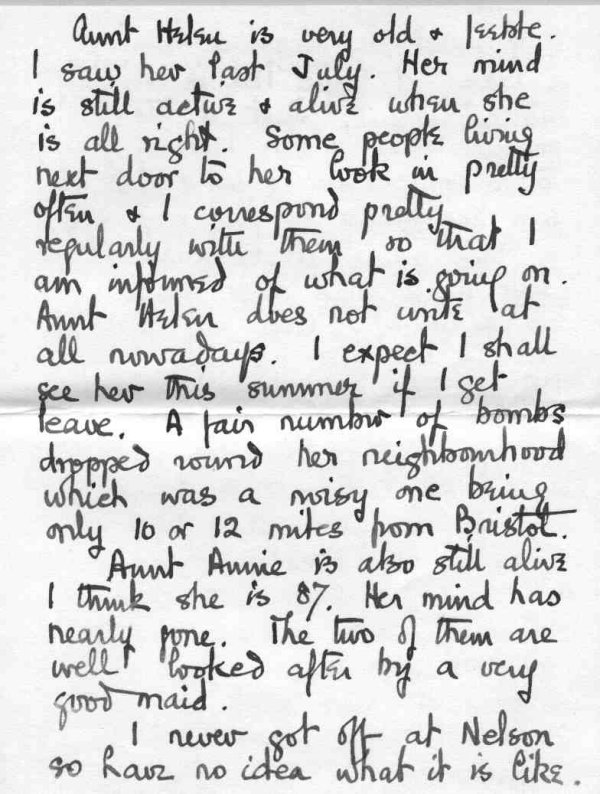 Aunt Helen is very old & feeble.
I saw her last July. Her mind
is still active & alive when she
is all right. Some people living
next door to her look in pretty
often & I correspond pretty
regularly with them so that I
am informed of what is going on.
Aunt Helen does not write at
all nowadays. I expect I shall
see her this summer if I get
leave. A fair number of bombs
dropped round her neighbourhood
which was a noisy one being
only 10 or 12 miles from Bristol.
Aunt Annie is also still alive
I think she is 87. Her mind has
nearly gone. The two of them are
well looked after by a very
good maid.
I never got off at Nelson
so have no idea what it is like.